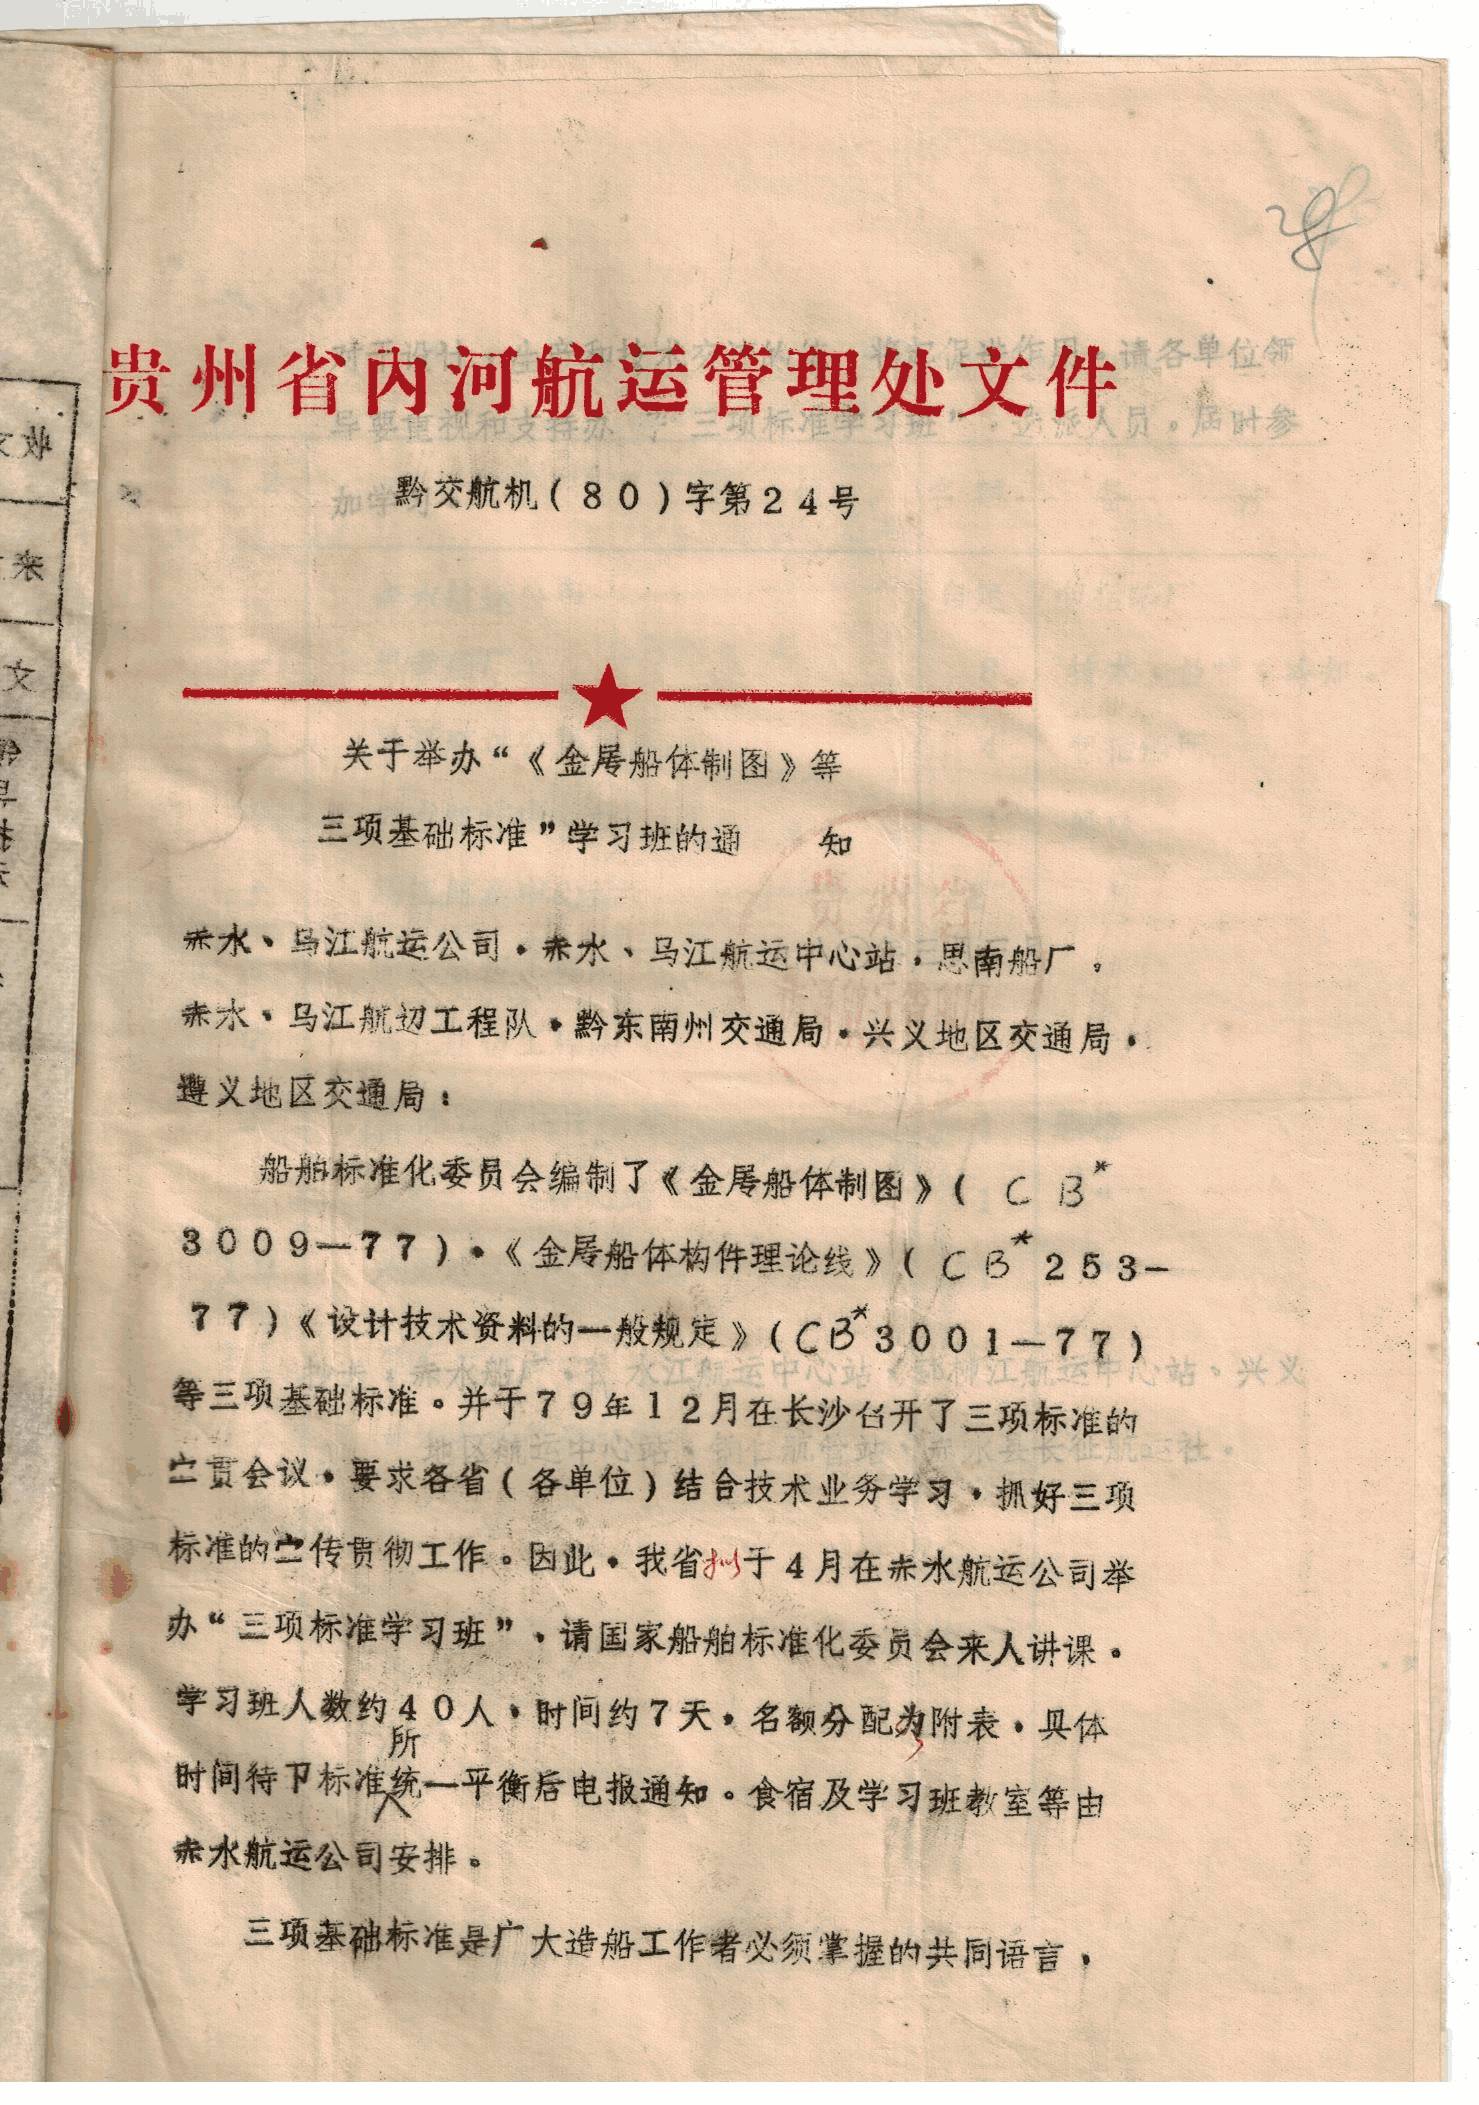 贵州省内河航运管理处文件
黔交航机(80)字第24号
关于举办“《金属船体制图》等
三项基础标准”学习班的通 知
赤水、乌江航运公司,赤水、乌江航运中心站,思南船厂,
赤水、乌江航道工程队,黔东南州交通局,兴义地区交通局,
遵义地区交通局:
船舶标准化委员会编制了《金属船体制图》( CB*
3009—77),《金属船体构件理论线》( CB* 253—
77)《设计技术资料的一般规定》(CB*3001—77)
等三项基础标准。并于79年12月在长沙召开了三项标准的
宣贯会议,要求各省(各单位)结合技术业务学习,抓好三项
标准的宣传贯彻工作。因此,我省拟于4月在赤水航运公司举
办“三项标准学习班”,请国家船舶标准化委员会来人讲课。
学习班人数约40人,时间约7天,名额分配为附表,具体
时间待下标准所统一平衡后电报通知。食宿及学习班教室等由
赤水航运公司安排。
三项基础标准是广大造船工作者必须掌握的共同语言,